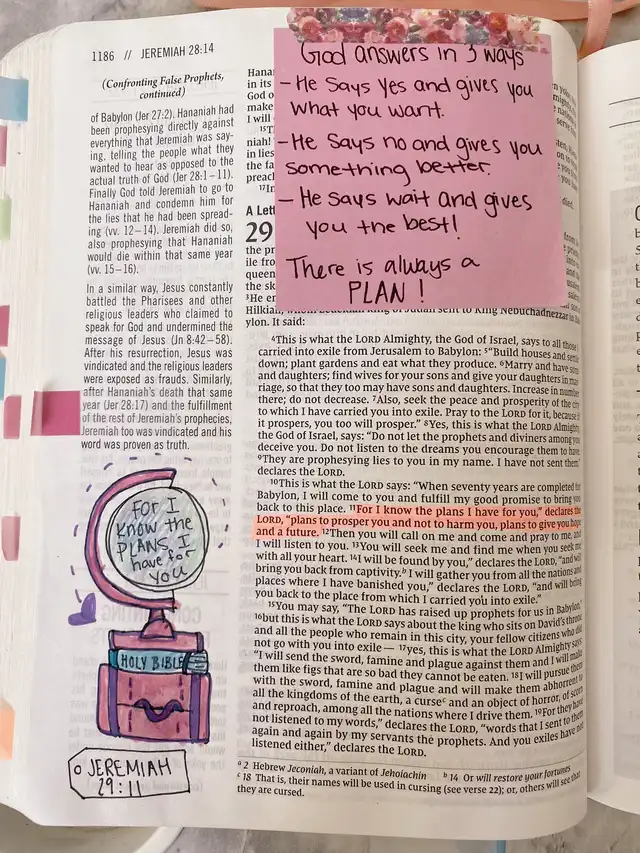 1186 // JEREMIAH 28:14
(Confronting False Prophets,
continued)
of Babylon (Jer 27:2). Hananiah had
been prophesying directly against
everything that Jeremiah was say-
ing, telling the people what they
wanted to hear as opposed to the
actual truth of God (Jer 28:1–11).
Finally God told Jeremiah to go to
Hananiah and condemn him for
the lies that he had been spread-
ing (vv. 12–14). Jeremiah did so,
also prophesying that Hananiah
would die within that same year
(vv. 15–16).
In a similar way, Jesus constantly
battled the Pharisees and other
religious leaders who claimed to
speak for God and undermined the
message of Jesus (Jn 8:42–58).
After his resurrection, Jesus was
vindicated and the religious leaders
were exposed as frauds. Similarly,
after Hananiah's death that same
year (Jer 28:17) and the fulfillment
of the rest of Jeremiah's prophecies,
Jeremiah too was vindicated and his
word was proven as truth.
FOR I
KNOW THE
PLANS I
have for
you
HOLY BIBLE
JEREMIAH
29:11
God answers in 3 ways
- He Says Yes and gives you
what you want.
- He Says no and gives you
something better.
- He Says wait and gives
you the best!
There is always a
PLAN!
Hana
in its
God o
make
I will
15T
niah!
in lies
the fa
preac
17In
A Let
29
the pr
ile fro
queen
the sk
3He en
Hilkiah, King of Judah sent to King Nebuchadnezzar in
ylon. It said:
4This is what the LORD Almighty, the God of Israel, says to all those I
carried into exile from Jerusalem to Babylon: 5"Build houses and settle
down; plant gardens and eat what they produce. 6Marry and have sons
and daughters; find wives for your sons and give your daughters in mar
riage, so that they too may have sons and daughters. Increase in number
there; do not decrease. 7Also, seek the peace and prosperity of the city
to which I have carried you into exile. Pray to the LORD for it, because if
it prospers, you too will prosper." 8Yes, this is what the LORD Almighty,
the God of Israel, says: "Do not let the prophets and diviners among you
deceive you. Do not listen to the dreams you encourage them to have.
9They are prophesying lies to you in my name. I have not sent them,"
declares the LORD.
10This is what the LORD says: "When seventy years are completed for
Babylon, I will come to you and fulfill my good promise to bring you
back to this place. 11For I know the plans I have for you," declares the
LORD, "plans to prosper you and not to harm you, plans to give you hope
and a future. 12Then you will call on me and come and pray to me, and
I will listen to you. 13You will seek me and find me when you seek me
with all your heart. 14I will be found by you," declares the LORD, "and will
bring you back from captivity.b I will gather you from all the nations and
places where I have banished you," declares the LORD, "and will bring
you back to the place from which I carried you into exile."
15You may say, "The LORD has raised up prophets for us in Babylon,"
16but this is what the LORD says about the king who sits on David's throne
and all the people who remain in this city, your fellow citizens who did
not go with you into exile— 17yes, this is what the LORD Almighty says:
"I will send the sword, famine and plague against them and I will make
them like figs that are so bad they cannot be eaten. 18I will pursue them
with the sword, famine and plague and will make them abhorrent to
all the kingdoms of the earth, a cursec and an object of horror, of scorn
and reproach, among all the nations where I drive them. 19For they have
not listened to my words," declares the LORD, "words that I sent to them
again and again by my servants the prophets. And you exiles have not
listened either," declares the LORD.
a 2 Hebrew Jeconiah, a variant of Jehoiachin b 14 Or will restore your fortunes
c 18 That is, their names will be used in cursing (see verse 22); or, others will see that
they are cursed.